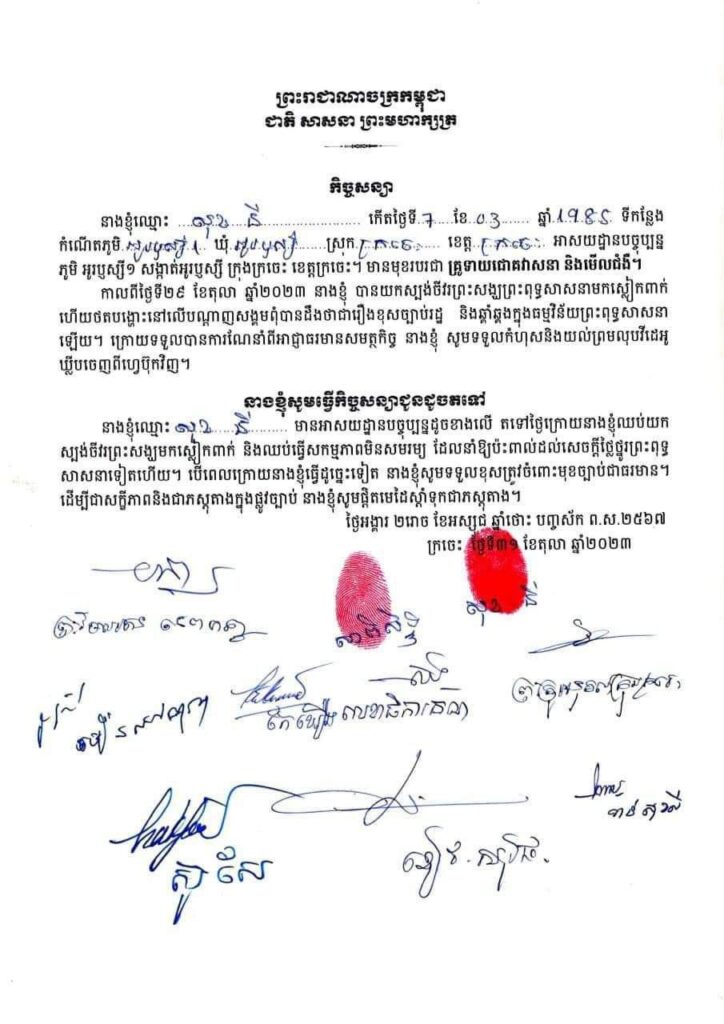 ព្រះរាជាណាចក្រកម្ពុជា
ជាតិ សាសនា ព្រះមហាក្សត្រ
កិច្ចសន្យា
នាងខ្ញុំឈ្មោះ ....សុខ នី.... កើតថ្ងៃទី.7 ខែ .03 ....... ឆ្នាំ.1985 ទីកន្លែង
កំណើតភូមិ.អូរឫស្សី1. ឃុំ.អូរឫស្សី ....ស្រុក.ក្រចេះ. ខេត្ត ក្រចេះ. អាសយដ្ឋានបច្ចុប្បន្ន
ភូមិ អូរឫស្សី១ សង្កាត់អូរឫស្សី ក្រុងក្រចេះ ខេត្តក្រចេះ។ មានមុខរបរជា គ្រូទាយជោគវាសនា និងមើលជំងឺ។
កាលពីថ្ងៃទី២៩ ខែតុលា ឆ្នាំ២០២៣ នាងខ្ញុំ បានយកស្បង់ចីវរព្រះសង្ឃព្រះពុទ្ធសាសនាមកស្លៀកពាក់
ហើយថតបង្ហោះនៅលើបណ្តាញសង្គមពុំបានដឹងថាជារឿងខុសច្បាប់រដ្ឋ និងឆ្គាំឆ្គងក្នុងធម្មវិន័យព្រះពុទ្ធសាសនា
ឡើយ។ ក្រោយទទួលបានការណែនាំពីអាជ្ញាធរមានសមត្ថកិច្ច នាងខ្ញុំ សូមទទួលកំហុសនិងយល់ព្រមលុបវីដេអូ
ឃ្លីបចេញពីហ្វេប៊ុកវិញ។
នាងខ្ញុំសូមធ្វើកិច្ចសន្យាជូនដូចតទៅ
នាងខ្ញុំឈ្មោះ សុខ....នី.... មានអាសយដ្ឋានបច្ចុប្បន្នដូចខាងលើ តទៅថ្ងៃក្រោយនាងខ្ញុំឈប់យក
ស្បង់ចីវរព្រះសង្ឃមកស្លៀកពាក់ និងឈប់ធ្វើសកម្មភាពមិនសមរម្យ ដែលនាំឱ្យប៉ះពាល់ដល់សេចក្តីថ្លៃថ្នូរព្រះពុទ្ធ
សាសនាទៀតហើយ។ បើពេលក្រោយនាងខ្ញុំធ្វើដូច្នេះទៀត នាងខ្ញុំសូមទទួលខុសត្រូវចំពោះមុខច្បាប់ជាធរមាន។
ដើម្បីជាសក្ខីភាពនិងជាភស្តុតាងក្នុងផ្លូវច្បាប់ នាងខ្ញុំសូមផ្តិតមេដៃស្តាំទុកជាភស្តុតាង។
ថ្ងៃអង្គារ ២រោច ខែអស្សុជ ឆ្នាំថោះ បញ្ចស័ក ព.ស.២៥៦៧
ក្រចេះ ថ្ងៃទី៣១ ខែតុលា ឆ្នាំ២០២៣
សុខ នី
លេខាធិការគណ
សូ សែ